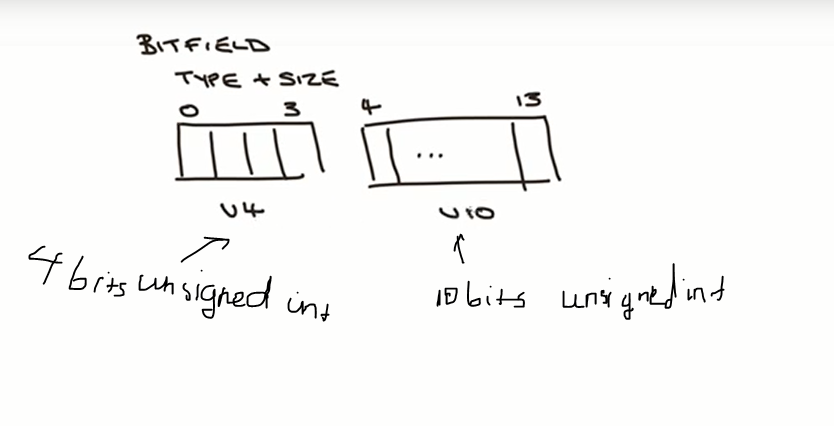 BITFIELD
TYPE + SIZE
0 3 4 13
...
U4 U10
4 bits unsigned int 10 bits unsigned int